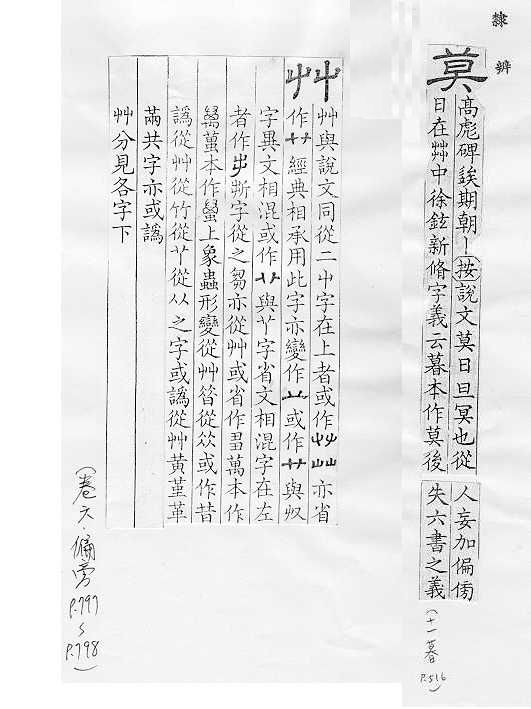 隸辨
莫
高彪碑䇾期朝｜按說文莫日且冥也從
日在茻中徐鉉新脩字義云暮本作莫後
人妄加偏傍
失六書之義
(十一暮
P.516)
艸
艸與說文同從二屮字在上者或作 亦省
作 經典相承用此字亦變作 或作 與
字異文相混或作 與 字省文相混字在左
者作 字從之芻亦從艸或省作 萬本作
本作 上象蟲形變從艸 從 或作昔
譌從艸從竹從 從 之字或譌從艸黃堇革
䓣共字亦或譌
艸分見各字下
(卷六·偏旁
P.797
~
P.798)